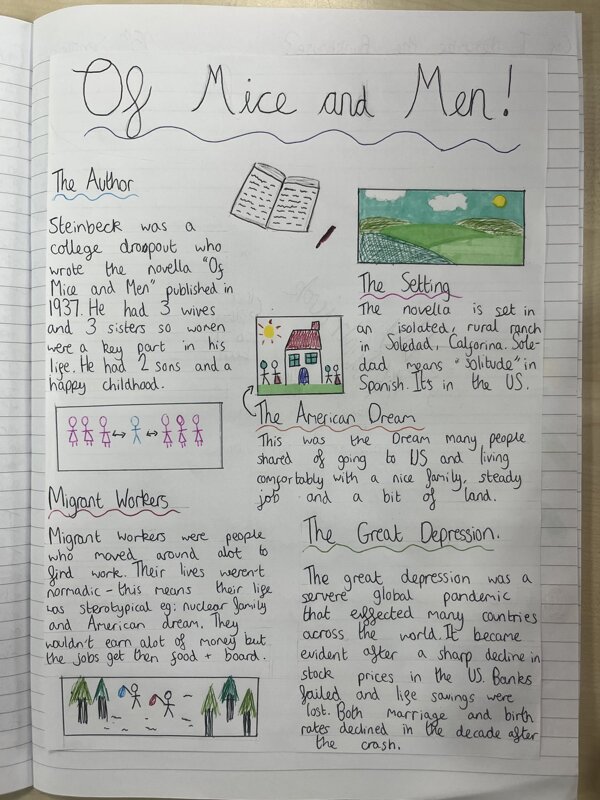 Of Mice and Men!
The Author
Steinbeck was a
college dropout who
wrote the novella "Of
Mice and Men" published in
1937. He had 3 wives
and 3 sisters so women
were a key part in his
life. He had 2 sons and a
happy childhood.
The Setting
The novella is set in
an isolated, rural ranch
in Soledad, Calforina. Sole-
dad means "solitude" in
Spanish. It's in the US.
The American Dream
This was the Dream many people
shared of going to US and living
comfortably with a nice family, steady
job and a bit of land.
Migrant Workers
Migrant workers were people
who moved around alot to
find work. Their lives weren't
normadic - this means their life
was sterotypical eg: nuclear family
and American dream. They
wouldn't earn alot of money but
the jobs get then food + board.
The Great Depression.
The great depression was a
servere global pandemic
that effected many countries
across the world. It became
evident after a sharp decline in
stock prices in the US. Banks
failed and life savings were
lost. Both marriage and birth
rates declined in the decade after
the crash.